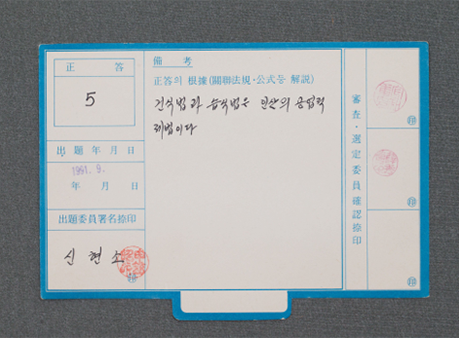 正答
5
出題年月日
1991. 9.
年 月 日
出題委員署名捺印
신현소
備考
正答의 根據(關聯法規·公式등 解說)
건식법과 습식법은 인산의 공업적
제법이다
審査·選定委員確認捺印
印
印
印